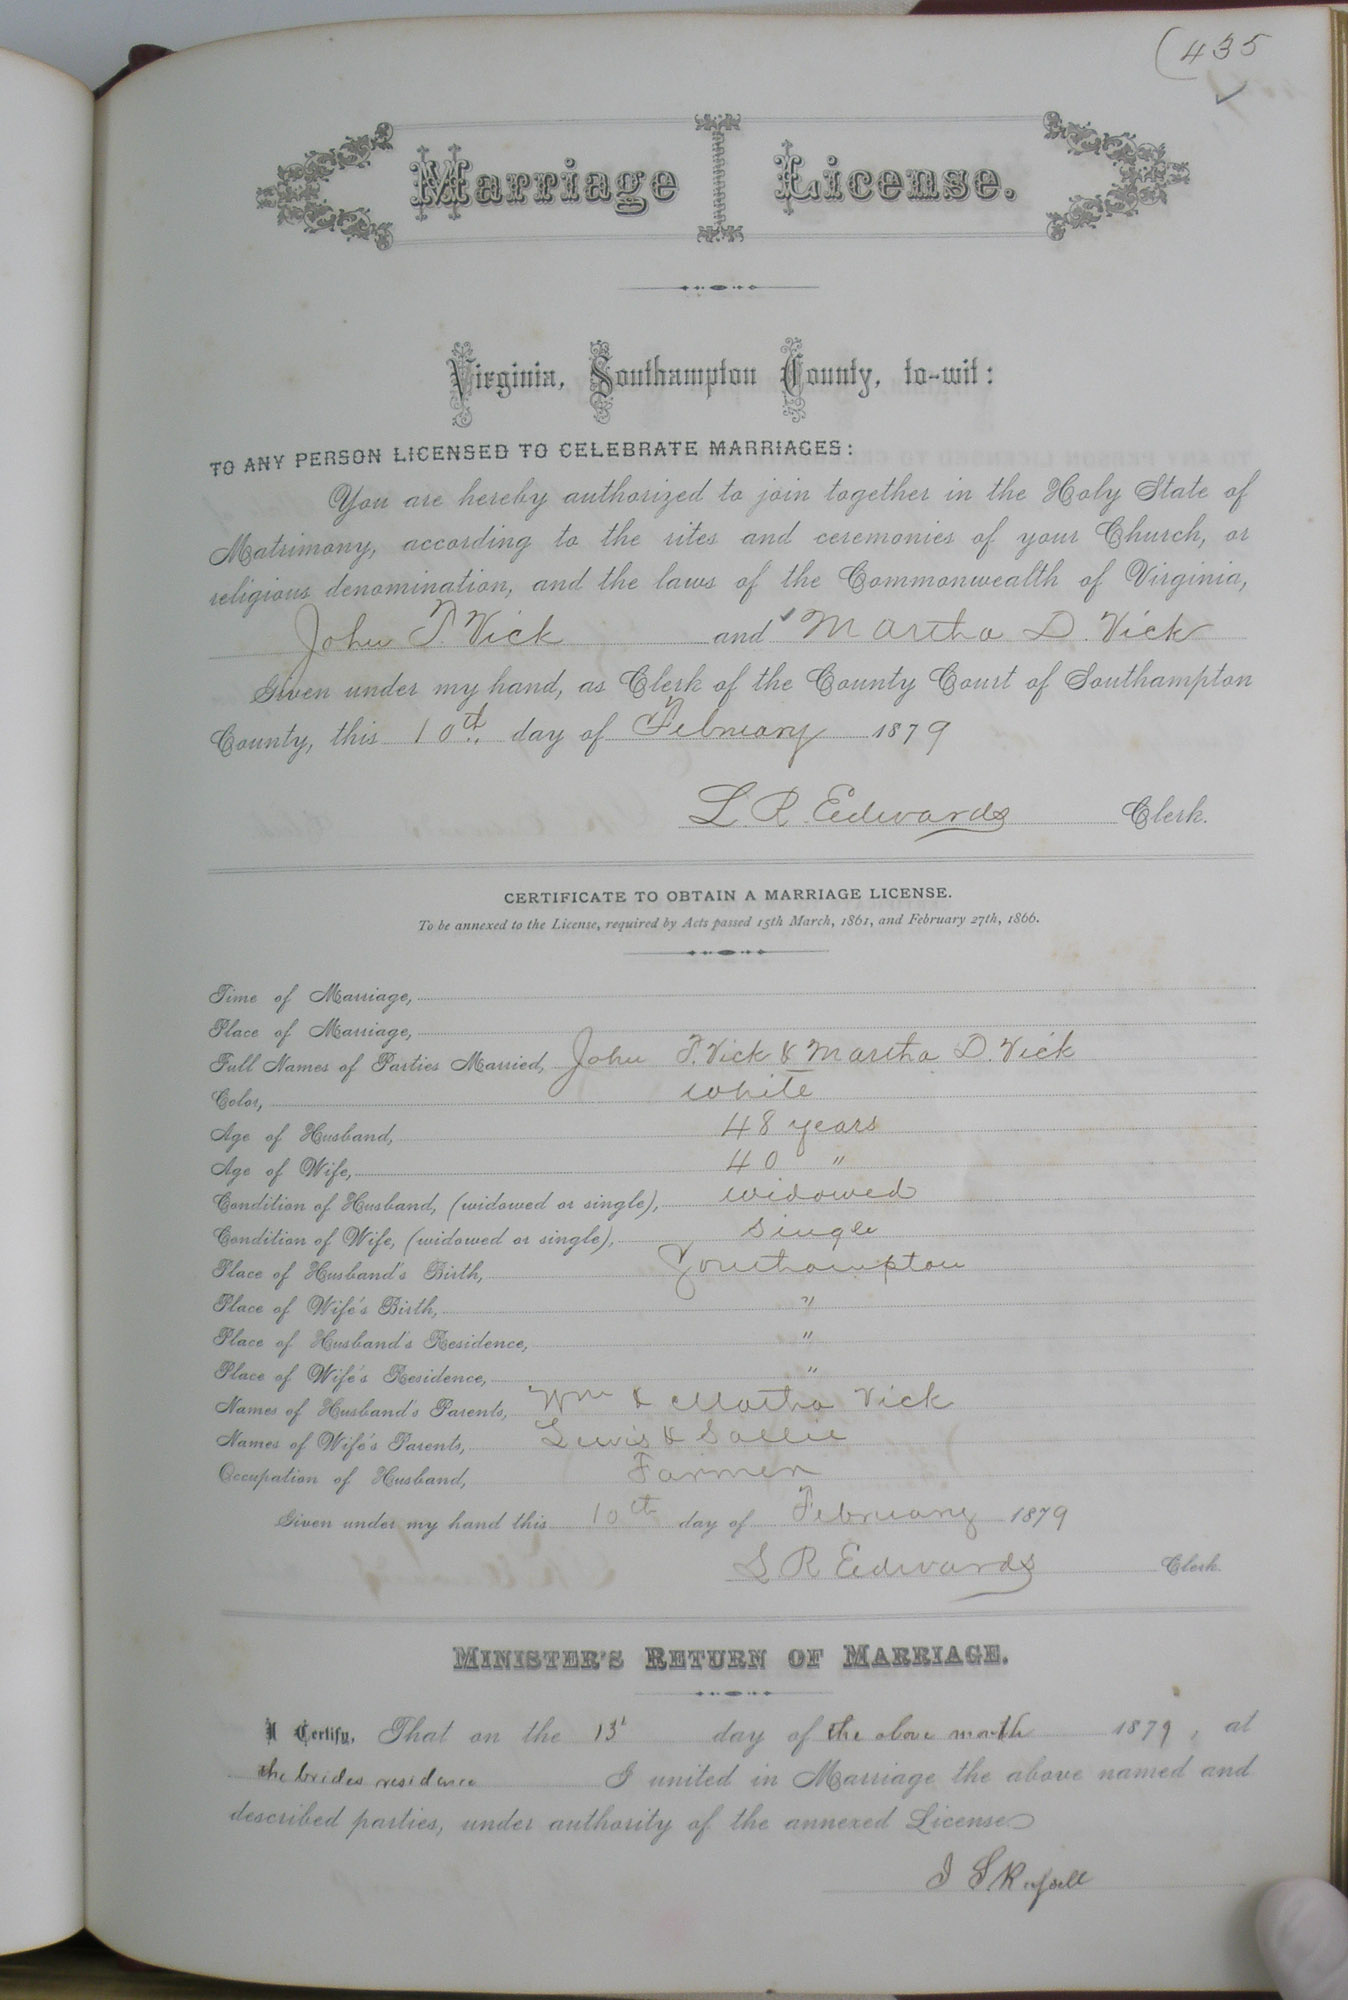 (435
Marriage License.
Virginia, Southampton County, to-wit:
TO ANY PERSON LICENSED TO CELEBRATE MARRIAGES:
You are hereby authorized to join together in the Holy State of
Matrimony, according to the rites and ceremonies of your Church, or
religious denomination, and the laws of the Commonwealth of Virginia,
John T. Vick and Martha D. Vick
Given under my hand, as Clerk of the County Court of Southampton
County, this 10th day of February 1879
L. R. Edwards Clerk.
CERTIFICATE TO OBTAIN A MARRIAGE LICENSE.
To be annexed to the License, required by Acts passed 15th March, 1861, and February 27th, 1866.
Time of Marriage,
Place of Marriage,
Full Names of Parties Married, John T. Vick & Martha D. Vick
Color, White
Age of Husband, 48 years
Age of Wife, 40 "
Condition of Husband, (widowed or single), widowed
Condition of Wife, (widowed or single), single
Place of Husband's Birth, Southampton
Place of Wife's Birth, "
Place of Husband's Residence, "
Place of Wife's Residence, "
Names of Husband's Parents, Wm & Martha Vick
Names of Wife's Parents, Lewis & Sallie
Occupation of Husband, Farmer
Given under my hand this 10th day of February 1879
L R Edwards Clerk.
MINISTER'S RETURN OF MARRIAGE.
I Certify, That on the 13t day of the above month 1879, at
the brides residence I united in Marriage the above named and
described parties, under authority of the annexed License